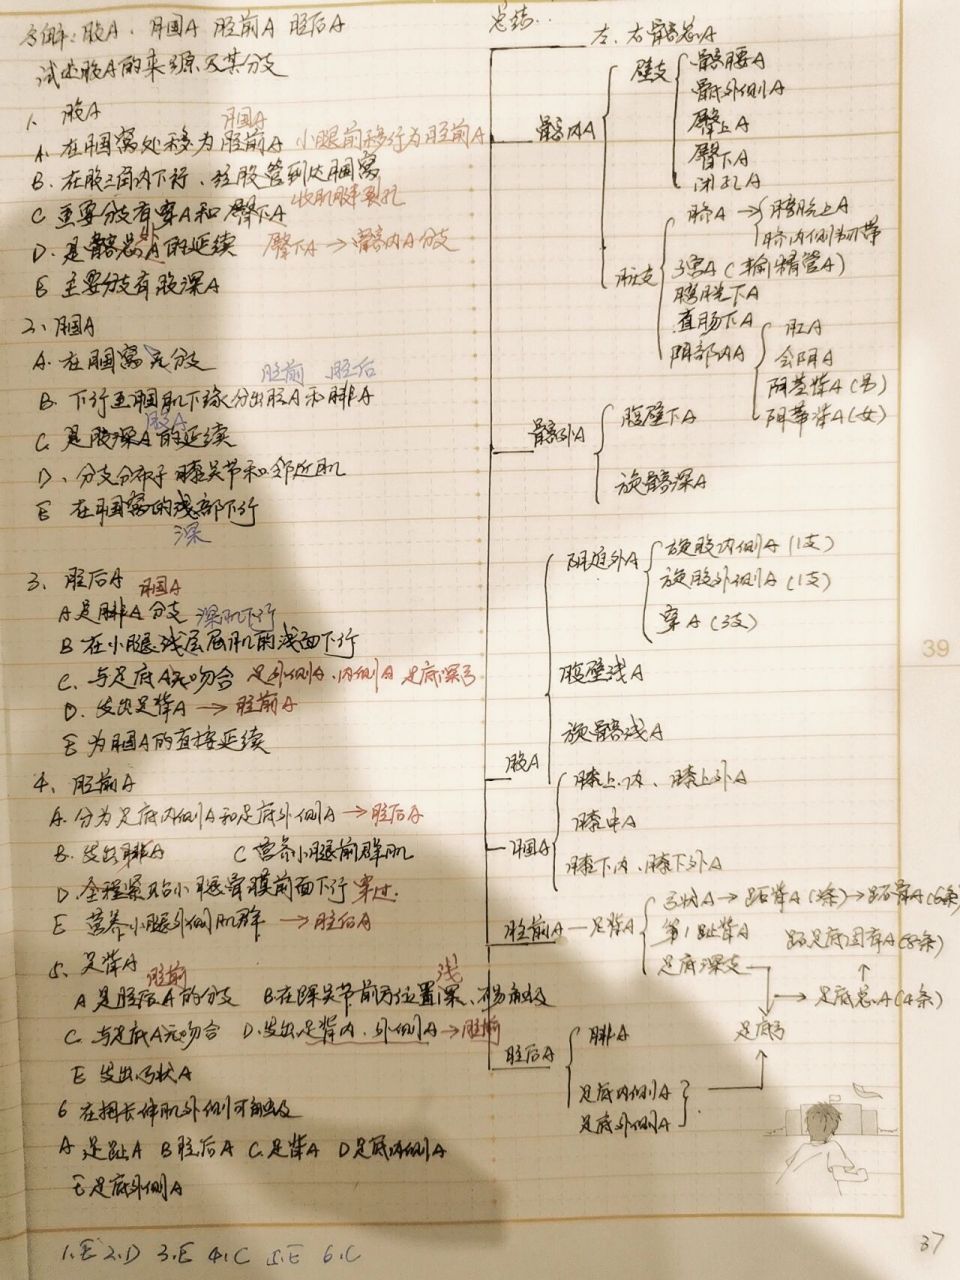 名解: 股A. 腘A 胫前A 胫后A
试述股A的来源及其分支
1、股A
腘A
A. 在腘窝处移为胫前A 小腿前移行为胫前A
B. 在股三角内下行、经股管到达腘窝
收肌腱裂孔
C 主要分支有穿A和臀下A
外
D. 是髂总A的延续 臀下A → 髂内A分支
E 主要分支有股深A
2、腘A
A. 在腘窝无分支
胫前 胫后
B. 下行至腘肌下缘分出胫A和腓A
股A
C. 是股深A的延续
D、分支分布于膝关节和邻近肌
E 在腘窝的浅部下行
深
3、胫后A
腘A
A 是腓A分支 深肌下行
B 在小腿浅层屈肌的浅面下行
C. 与足底A无吻合 足外侧A、内侧A 足底深弓
D. 发出足背A → 胫前A
E 为腘A的直接延续
4、胫前A
A. 分为足底内侧A和足底外侧A → 胫后A
B. 发出腓A C 营养小腿前群肌
D 全程紧贴小腿骨膜前面下行 穿过
E 营养小腿外侧肌群 → 胫后A
5、足背A
胫前 浅
A 是胫后A的分支 B.在踝关节前方位置深、不易触及
C. 与足底A无吻合 D.发出足背内、外侧A → 胫前
E 发出弓状A
6 在拇长伸肌外侧可触及
A 足趾A B 胫后A C.足背A D足底内侧A
E足底外侧A
1.E 2.D 3.E 4.C 5.E 6.C
总结..
左、右髂总A
髂内A
壁支
髂腰A
骶外侧A
臀上A
臀下A
闭孔A
脏支
脐A → 膀胱上A
脐内侧韧带
子宫A (输精管A)
膀胱下A
直肠下A
阴部内A
肛A
会阴A
阴茎背A (男)
阴蒂背A (女)
髂外A
腹壁下A
旋髂深A
股A
旋股内侧A (1支)
旋股外侧A (1支)
穿A (3支)
腹壁浅A
旋髂浅A
腘A
膝上内、膝上外A
膝中A
膝下内、膝下外A
胫前A — 足背A
弓状A → 跖背A
第1跖背A
足底深支
足底总A (4条)
足底弓
胫后A
腓A
足底内侧A
足底外侧A
39
37